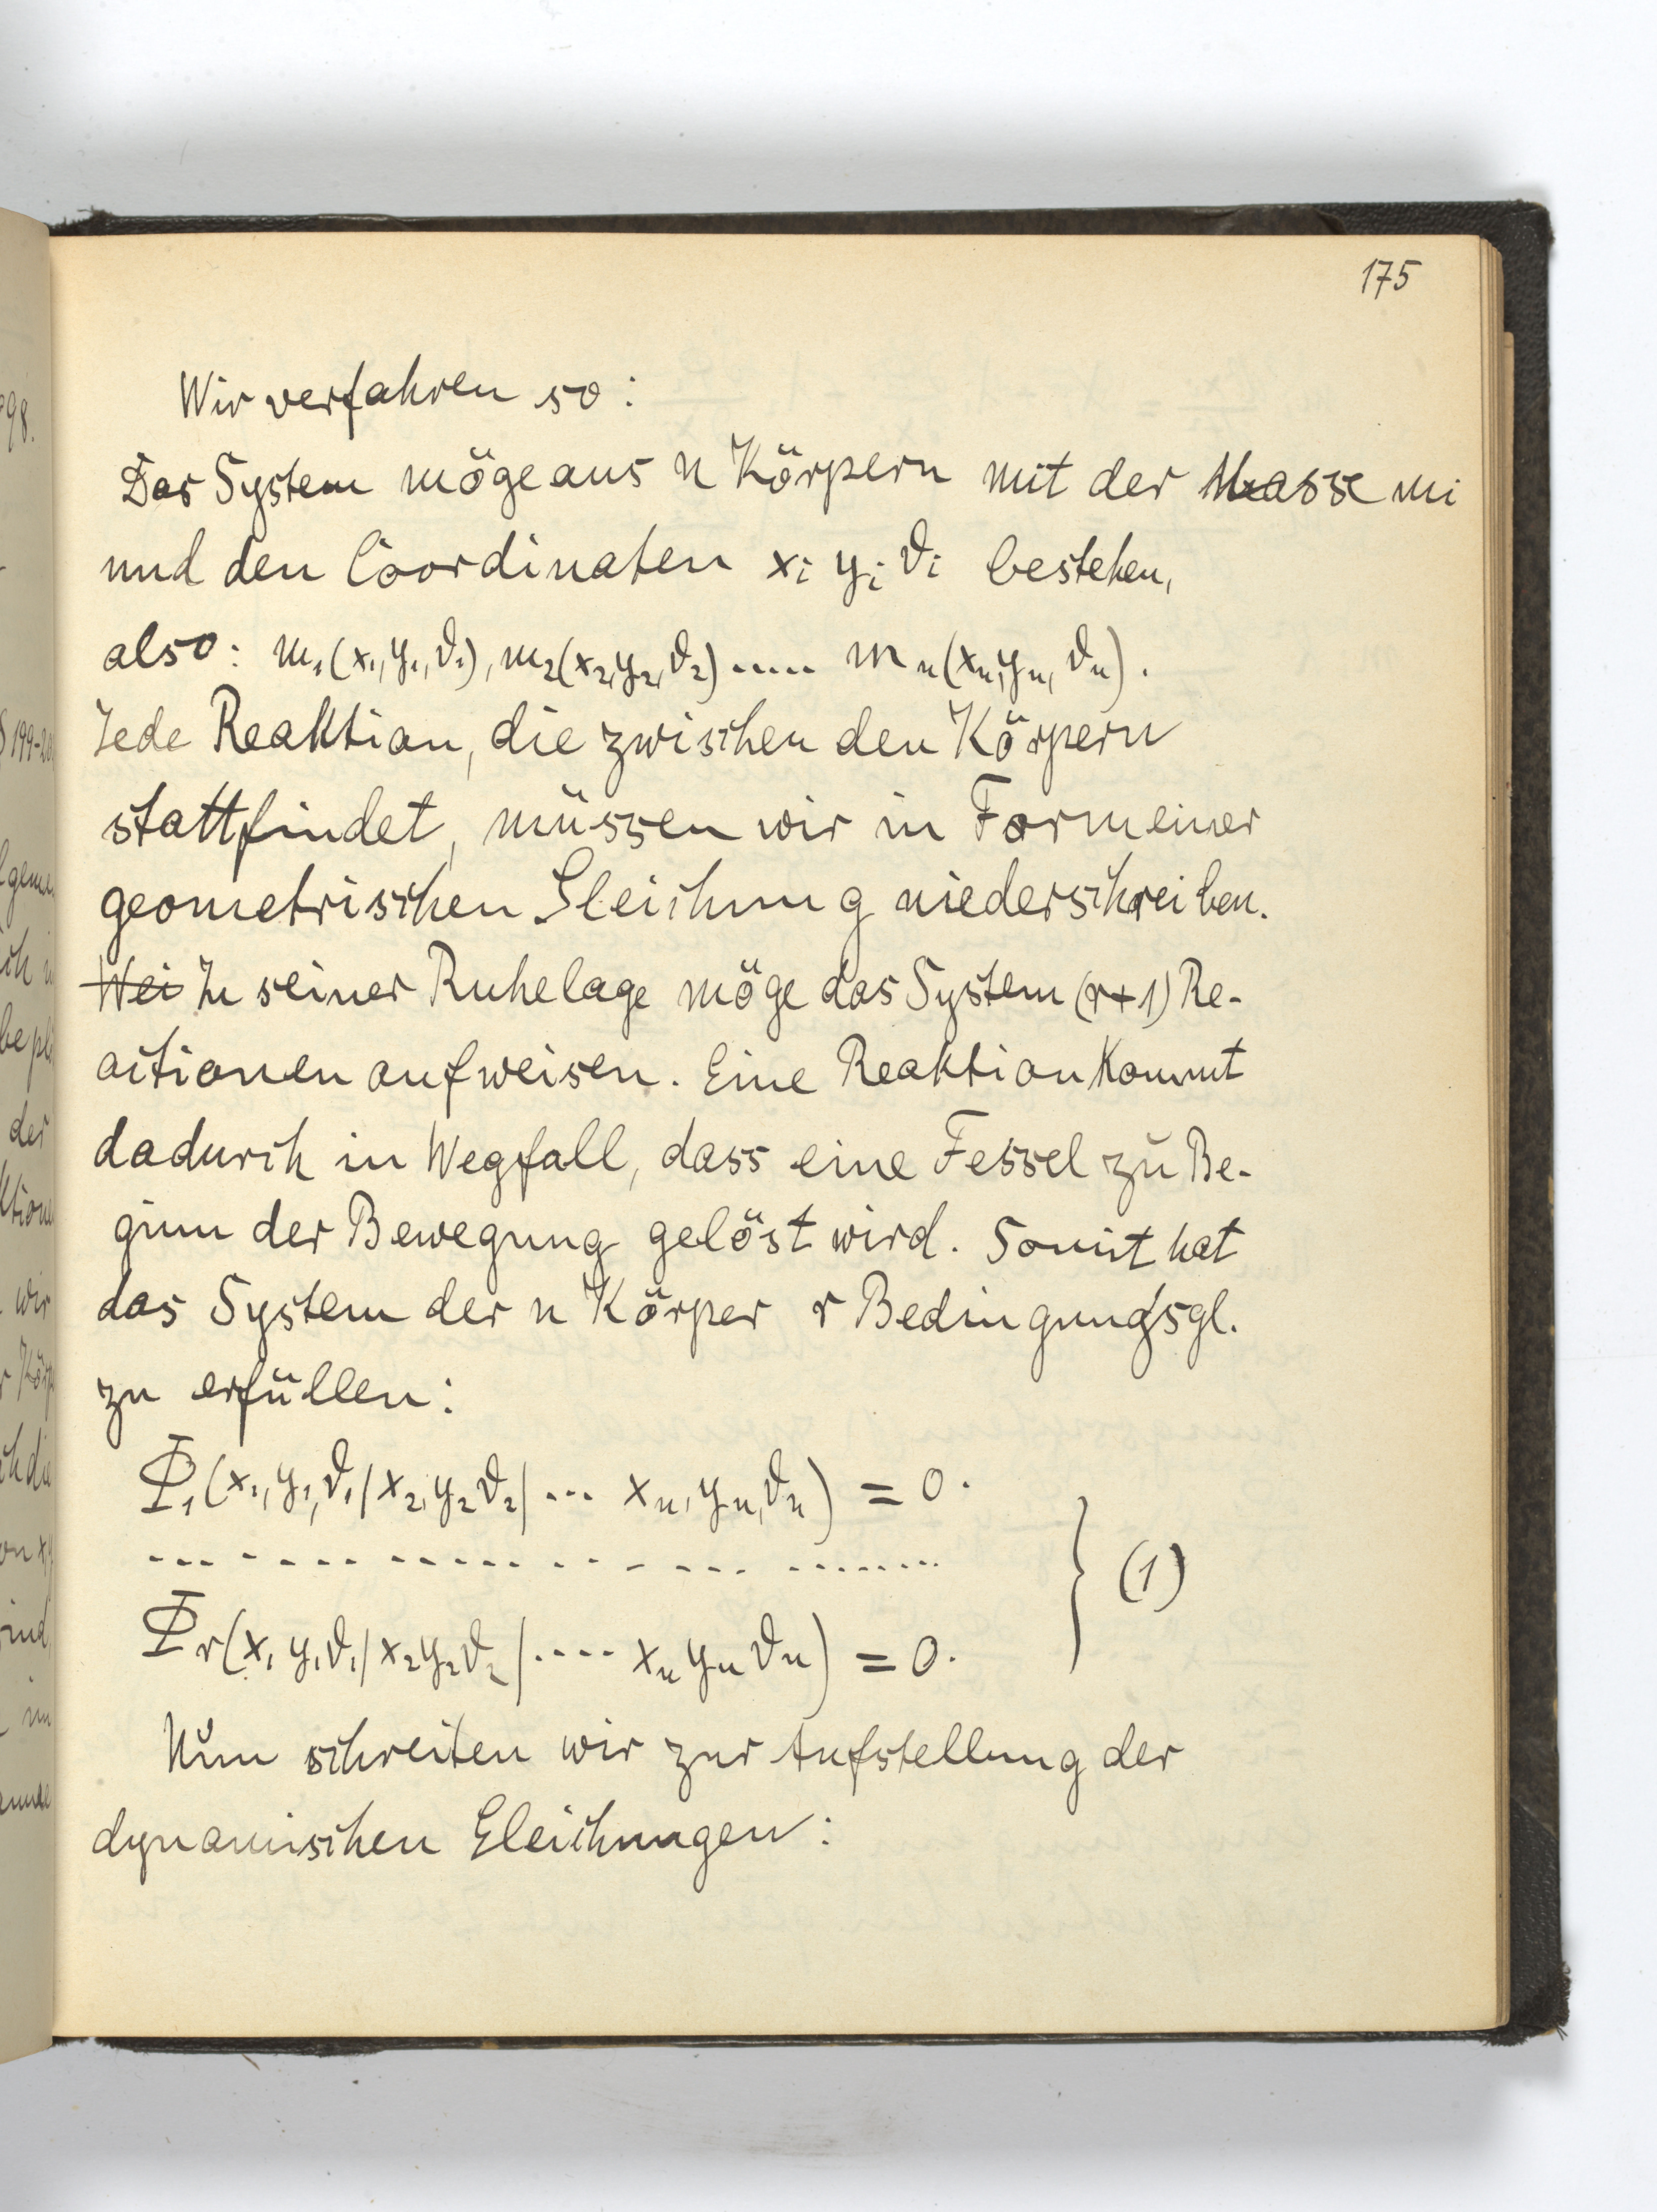 175
Wir verfahren so:
Das System möge aus n Körpern mit der Masse mi
und den Coordinaten xi yi ϑi bestehen,
also: m₁(x₁,y₁,ϑ₁), m₂(x₂,y₂,ϑ₂)..... mₙ(xₙ,yₙ,ϑₙ).
Jede Reaktion, die zwischen den Körpern
stattfindet, müssen wir in Form einer
geometrischen Gleichung niederschreiben.
Wei In seiner Ruhelage möge das System (r+1) Re-
actionen aufweisen. Eine Reaktion kommt
dadurch in Wegfall, dass eine Fessel zu Be-
ginn der Bewegung gelöst wird. Somit hat
das System der n Körper r Bedingungsgl.
zu erfüllen:
Φ₁(x₁,y₁,ϑ₁/x₂,y₂ϑ₂/... xₙ,yₙ,ϑₙ) = 0.
(1)
Φr(x₁y₁ϑ₁/x₂y₂ϑ₂/.... xₙyₙϑₙ) = 0.
Nun schreiten wir zur Aufstellung der
dynamischen Gleichungen: